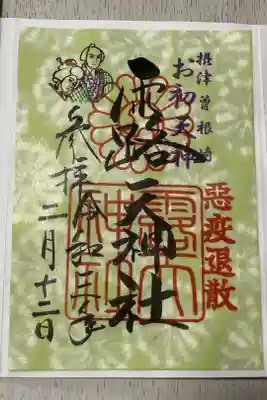 摂津曽根崎
お初天神
惡疫退散
露天神社
参拝令和
二月十二日